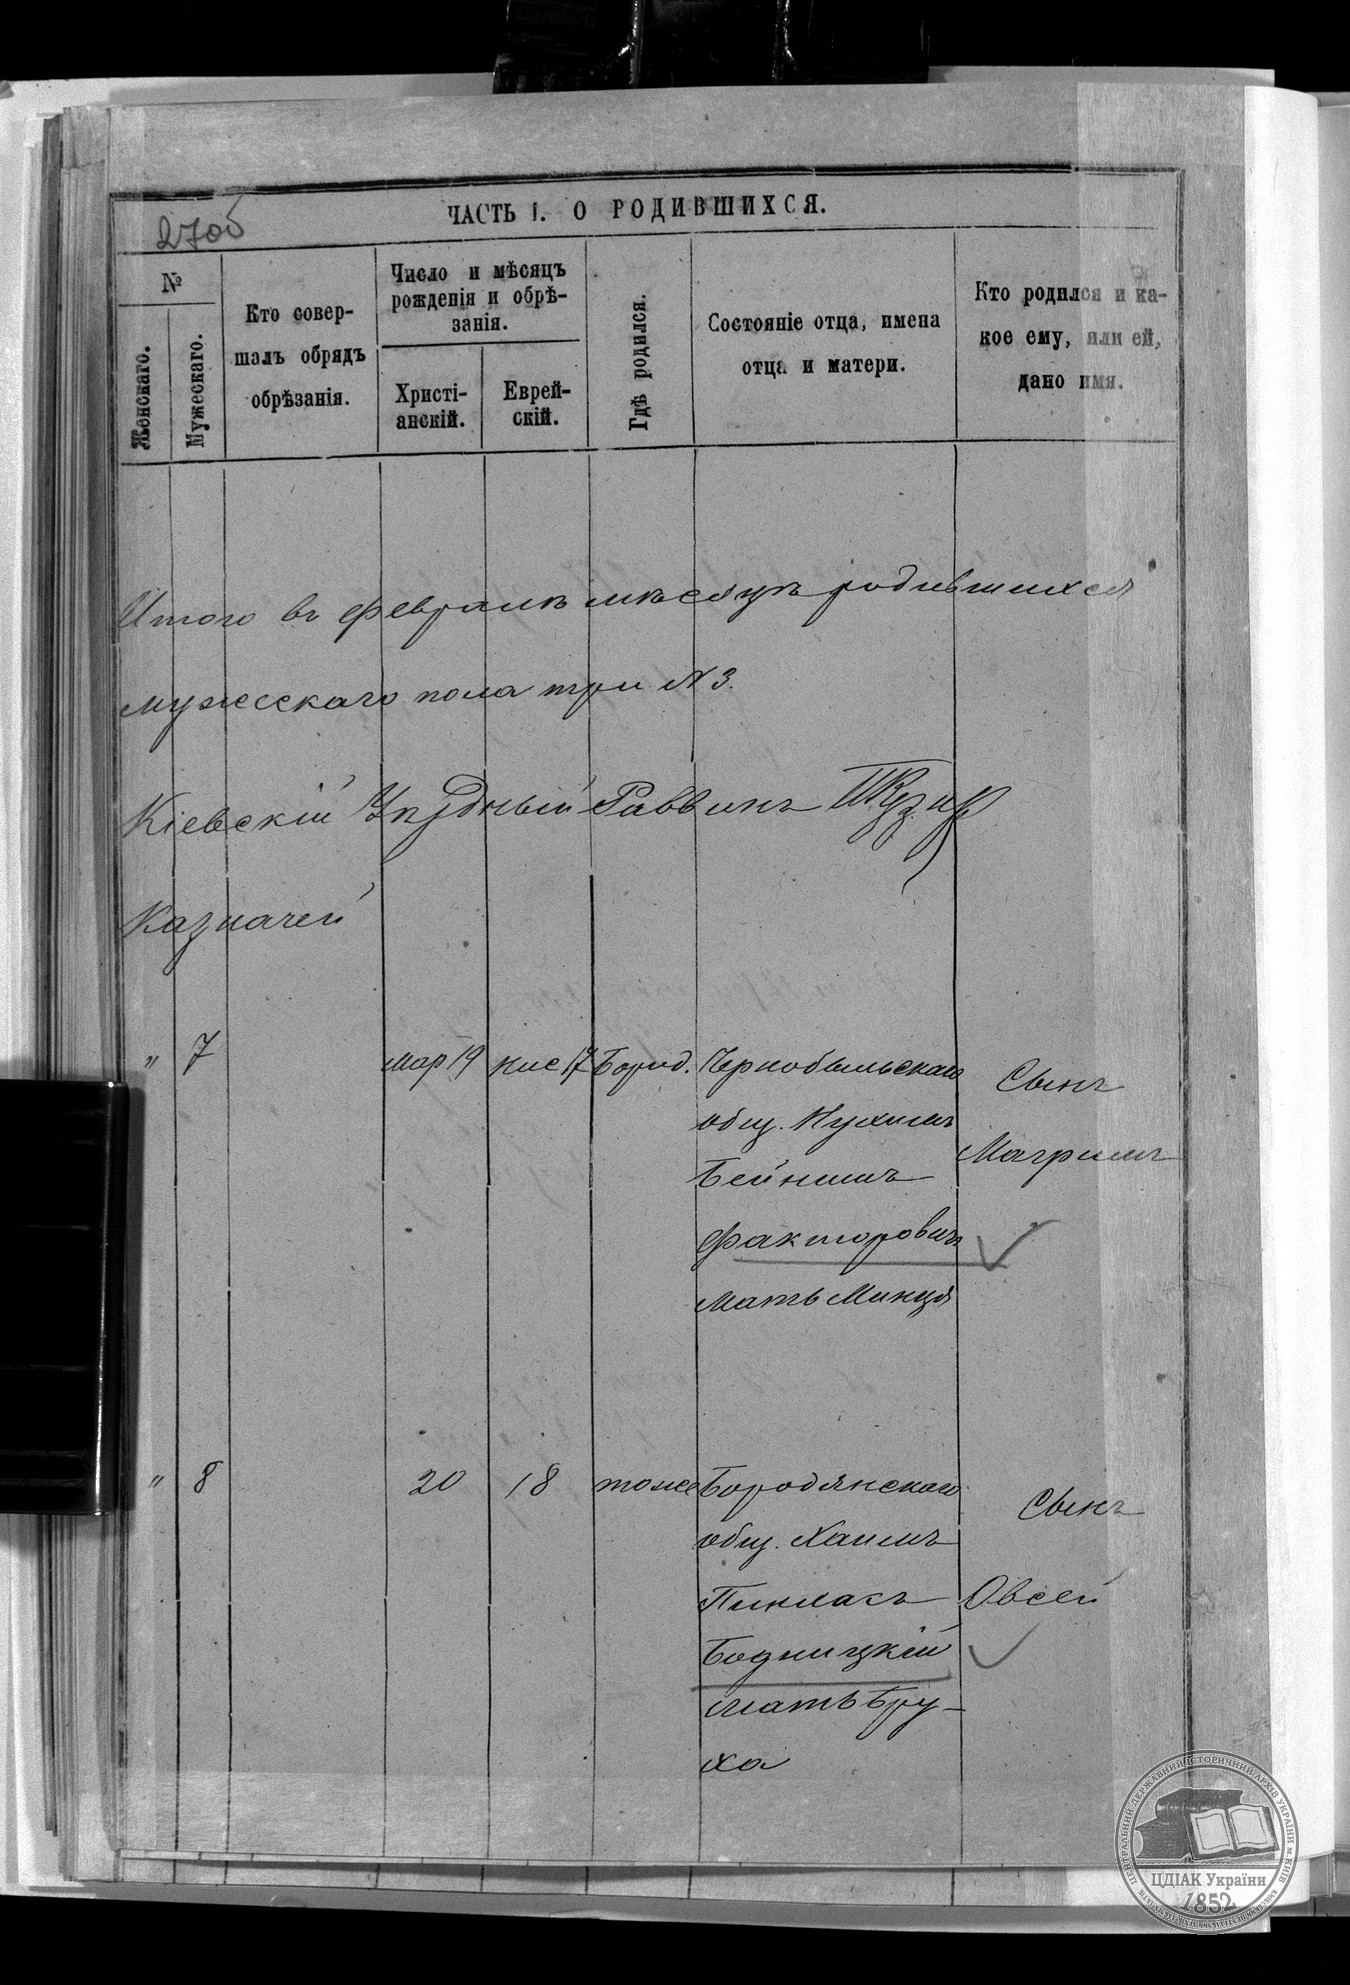 270б
ЧАСТЬ I. О РОДИВШИХСЯ.
№
Женскаго.
Мужескаго.
Кто совер-
шалъ обрядъ
обрѣзанія.
Число и мѣсяцъ
рожденія и обрѣ-
занія.
Христі-
анскій.
Еврей-
скій.
Гдѣ родился.
Состояніе отца, имена
отца и матери.
Кто родился и ка-
кое ему, или ей,
дано имя.
Итого въ февралѣ мѣсяцѣ родившихся
мужескаго пола три № 3.
Кіевскій Уѣздный Раввинъ
Казначей
" 7 мар 19 нис 17 Бород. Чернобыльскаго
общ. Нухимъ
Бейнишъ
Факторовичъ
мать Минця
Сынъ
Маграмъ
" 8 20 18 тоже Бородянскаго
общ. Хаимъ
Пинхасъ
Бодницкій
мать Бру-
ха
Сынъ
Овсей
ЦЕНТРАЛЬНИЙ ДЕРЖАВНИЙ ІСТОРИЧНИЙ АРХІВ УКРАЇНИ м. КИЇВ
ЦДІАК України
1852